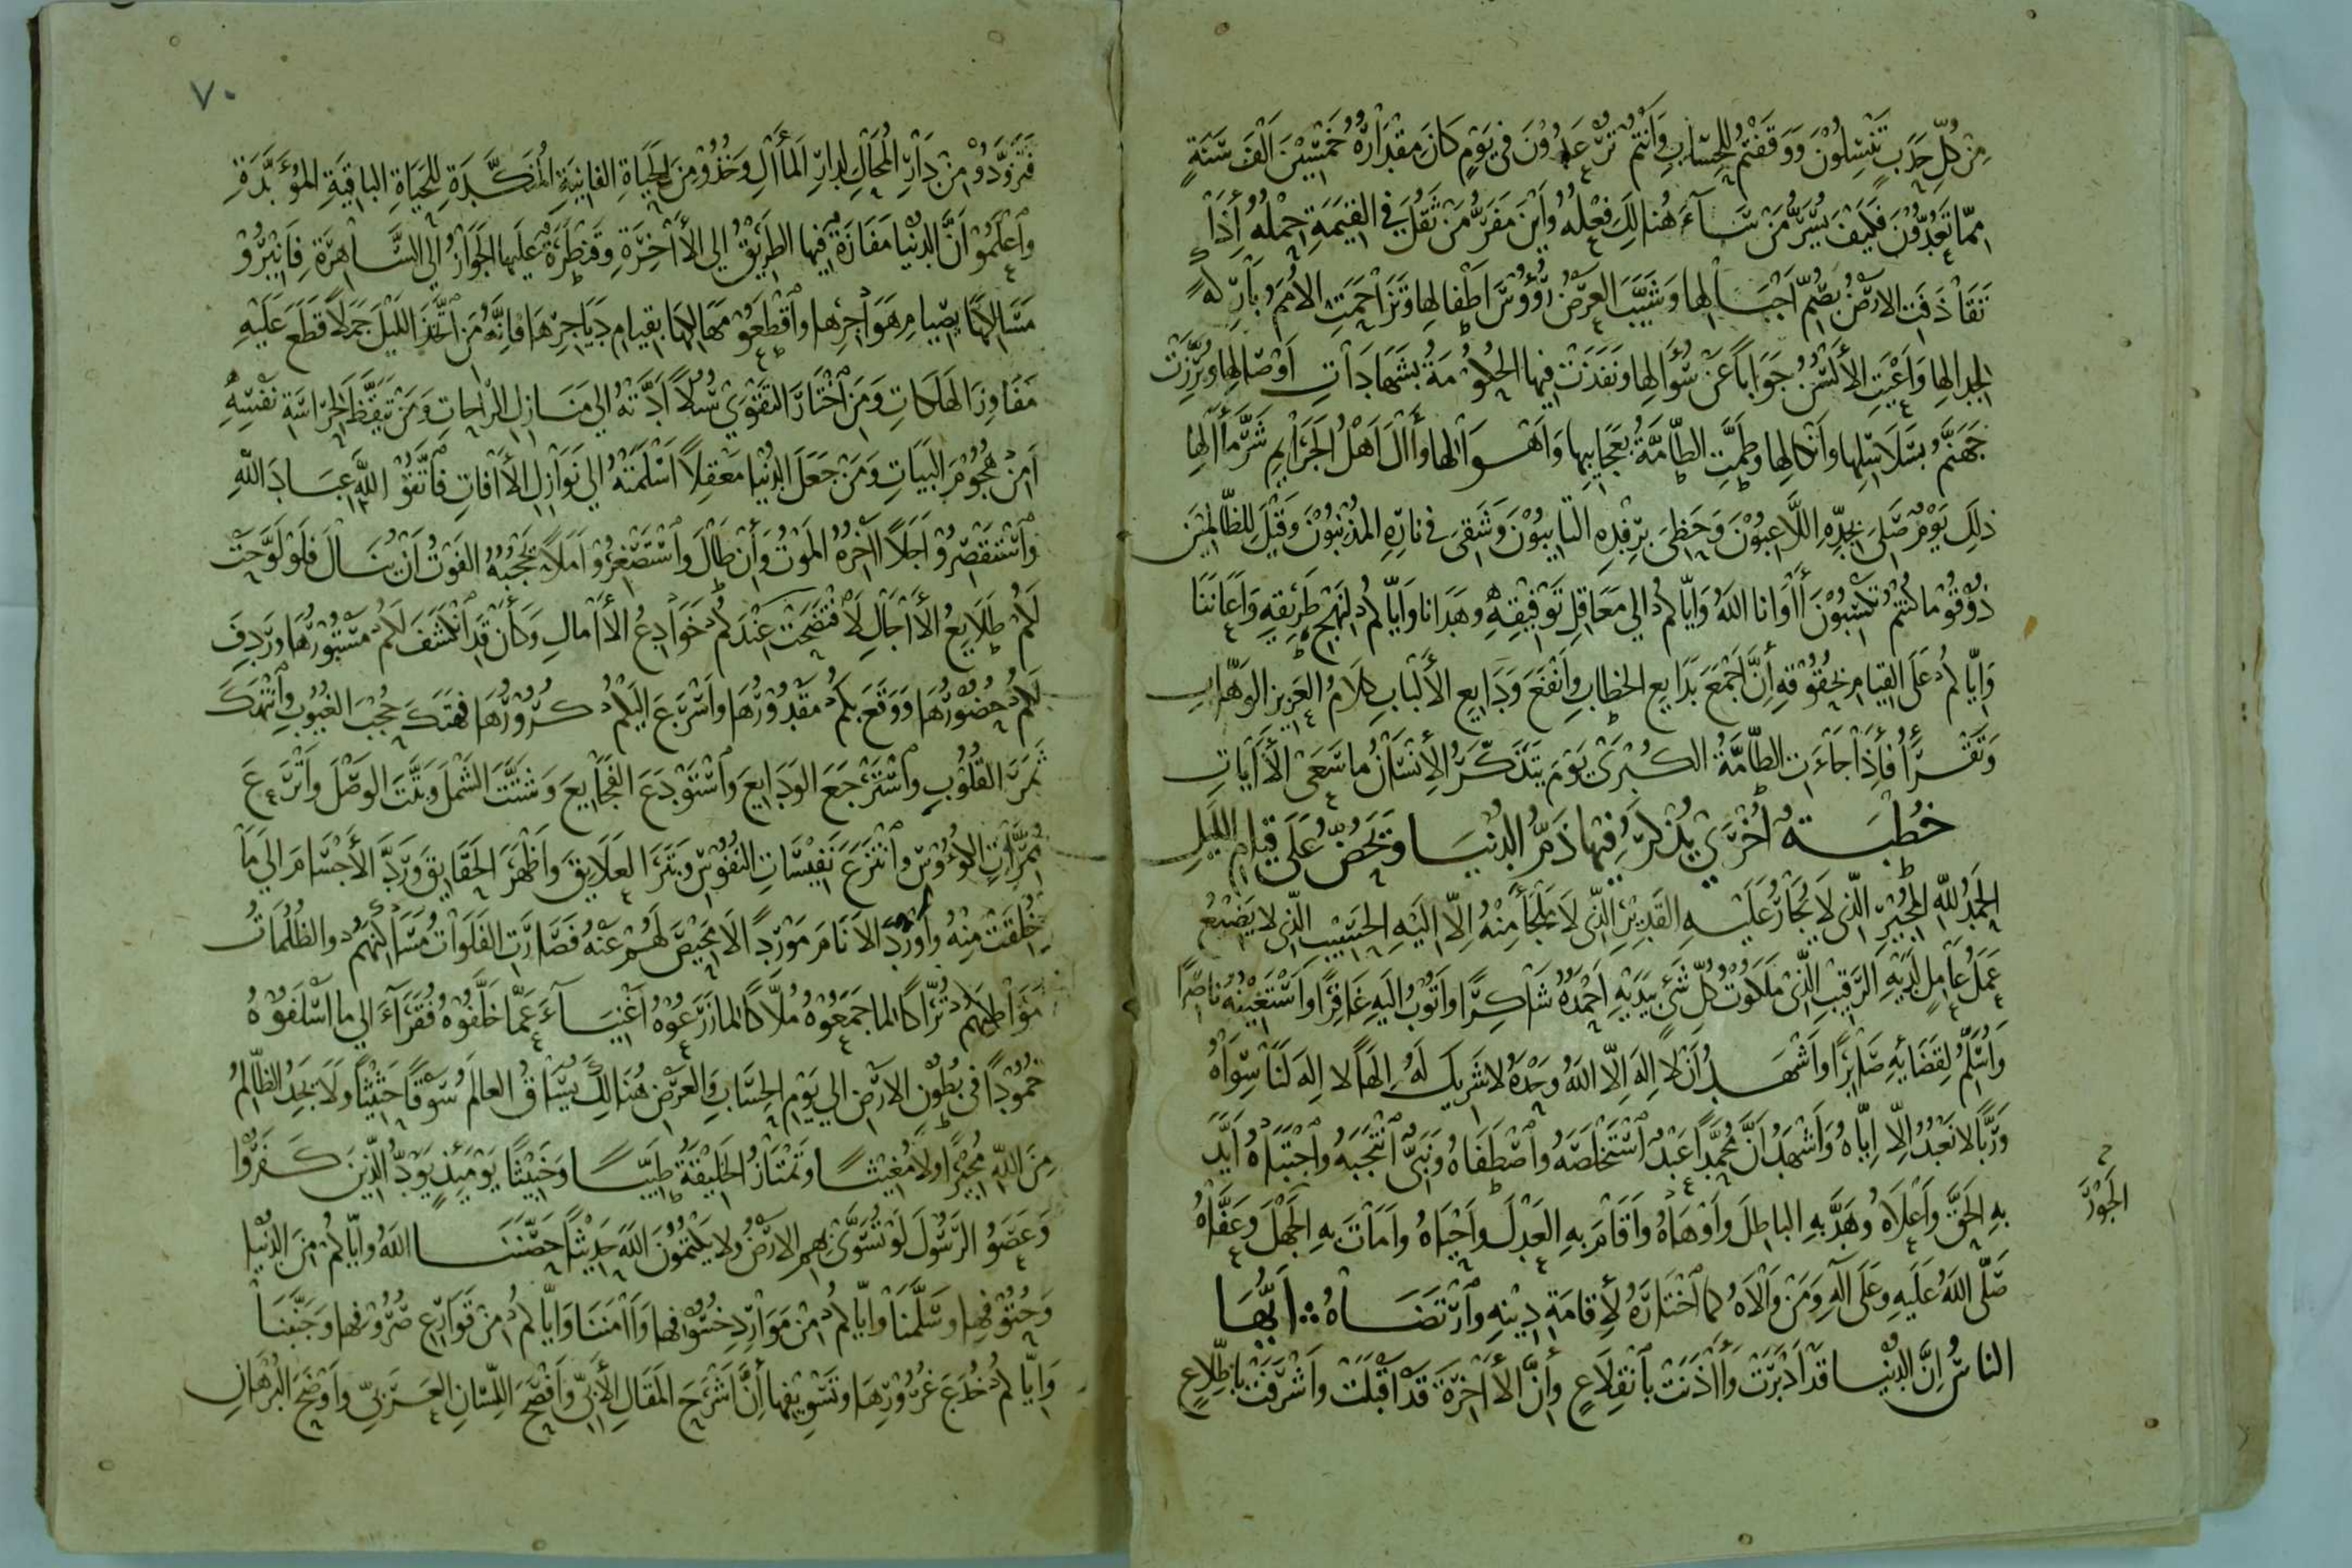 مِنْ كُلِّ حَدَبٍ تَنْسِلُونَ وَوَقَفْتُمْ لِلْحِسَابِ وَاَنْتُمْ تُرْعَدُوْنَ فِي يَوْمٍ كَانَ مِقْدَارُهُ خَمْسِيْنَ اَلْفَ سَنَةٍ
مِمَّا تَعُدُّوْنَ فَكَيْفَ يُسَرُّ مَنْ سَآءَ هُنَالِكَ فِعْلُهُ وَاَيْنَ مَفَرُّ مَنْ ثَقُلَ فِي الْقِيٰمَةِ حِمْلُهُ أِذَا
تَقَاذَفَتِ الْاَرْضُ بِصُمِّ اَجْبَالِهَا وَشَيَّبَ الْعَرْضُ رُؤُوْسَ اَطْفَالِهَا وَتَزَاحَمَتِ الْاُمَمُ بِأَرْ لَهُ
لِجِدَالِهَا وَاَعْيَتِ الْأَلْسُنُ جَوَابًا عَنْ سُؤَالِهَا وَنَفَذَتْ فِيهَا الْحُكُوْمَةُ بِشَهَادَاتِ اَوْصَالِهَا وَبُرِّزَتْ
جَهَنَّمُ بِسَلَاسِلِهَا وَاَنْكَالِهَا وَطَمَّتِ الطَّامَّةُ بِعَجَايِبِهَا وَاَهْوَالِهَا وَأَالَ اَهْلُ الْجَرَايِمِ شَرَّ مَأَالِهَا
ذٰلِكَ يَوْمٌ صَلِيَ بِجِدِّهِ اللَّاعِبُوْنَ وَحَظِيَ بِرِفْدِهِ التَّايِبُوْنَ وَشَقِيَ فِي نَارِهِ الْمُذْنِبُوْنَ وَقِيْلَ لِلظَّالِمِيْنَ
ذُوْقُوْا مَا كُنْتُمْ تَكْسِبُوْنَ أَاوَانَا اللهُ وَاِيَّاكُمْ اِلَى مَعَاقِلِ تَوْفِيْقِهِ وَهَدَانَا وَاِيَّاكُمْ لِنَهْجِ طَرِيْقِهِ وَاَعَانَنَا
وَاِيَّاكُمْ عَلَى الْقِيَامِ بِحُقُوْقِهِ اِنَّ اَجْمَعَ بَدَايِعِ الْخِطَابِ وَاَنْفَعَ وَدَايِعِ الْأَلْبَابِ كَلَامُ الْعَزِيزِ الْوَهَّابِ
وَتَقْرَأُ فَأِذَا جَاءَتِ الطَّامَّةُ الْكُبْرَىٰ يَوْمَ يَتَذَكَّرُ الْاِنْسَانُ مَا سَعَىٰ الْأَآيَاتِ
خُطْبَةٌ اُخْرَىٰ يَذْكُرُ فِيْهَا ذَمَّ الدُّنْيَا وَيَحُضُّ عَلَى قِيَامِ اللَّيْلِ
اَلْحَمْدُ لِلّٰهِ الْمُجِيْرِ الَّذِي لَا يُجَارُ عَلَيْهِ الْقَدِيْرِ الَّذِي لَا مَلْجَأَ مِنْهُ اِلَّا اِلَيْهِ الْحَسِيْبِ الَّذِي لَا يَضِيْعُ
عَمَلُ عَامِلٍ لَدَيْهِ الرَّقِيْبِ الَّذِي مَلَكُوْتُ كُلِّ شَيْءٍ بِيَدَيْهِ اَحْمَدُهُ شَاكِرًا وَاَتُوْبُ اِلَيْهِ غَافِرًا وَاَسْتَعِيْنُهُ نَاصِرًا
وَاُسَلِّمُ لِقَضَايِهِ صَابِرًا وَاَشْهَدُ اَنْ لَا اِلٰهَ اِلَّا اللهُ وَحْدَهُ لَا شَرِيكَ لَهُ اِلٰهًا لَا اِلٰهَ لَنَا سِوَاهُ
وَرَبًّا لَا نَعْبُدُ اِلَّا اِيَّاهُ وَاَشْهَدُ اَنَّ مُحَمَّدًا عَبْدٌ اسْتَخْلَصَهُ وَاصْطَفَاهُ وَنَبِيٌّ انْتَجَبَهُ وَاجْتَبَاهُ اَيَّدَ
بِهِ الْحَقَّ وَاَعْلَاهُ وَهَدَّ بِهِ الْبَاطِلَ وَاَوْهَاهُ وَاَقَامَ بِهِ الْعَدْلَ وَاَحْيَاهُ وَاَمَاتَ بِهِ الْجَهْلَ وَعَفَّاهُ
الْجَوْرَ
صَلَّى اللهُ عَلَيْهِ وَعَلَى آلِهِ وَمَنْ وَالَاهُ كَمَا اخْتَارَهُ لِأِقَامَةِ دِيْنِهِ وَارْتَضَاهُ ∴ اَيُّهَا
النَّاسُ اِنَّ الدُّنْيَا قَدْ اَدْبَرَتْ وَأَاذَنَتْ بِانْقِلَاعٍ وَأِنَّ الْأَاخِرَةَ قَدْ اَقْبَلَتْ وَاَشْرَفَتْ بِاطِّلَاعٍ
٧٠
فَتَزَوَّدُوْا مِنْ دَارِ الْمُحَالِ لِدَارِ الْمَأَالِ وَخُذُوْا مِنَ الْحَيَاةِ الْفَانِيَةِ الْمُنَكَّدَةِ لِلْحَيَاةِ الْبَاقِيَةِ الْمُؤَبَّدَةِ
وَاعْلَمُوْا اَنَّ الدُّنْيَا مَفَازَةٌ فِيْهَا الطَّرِيْقُ اِلَى الْأَاخِرَةِ وَقَنْطَرَةٌ عَلَيْهَا الْجَوَازُ اِلَى السَّاهِرَةِ فَابْتَدِرُوْا
مَسَالِكَهَا بِصِيَامِ هَوَاجِرِهَا وَاقْطَعُوْا مَهَالِكَهَا بِقِيَامِ دَيَاجِرِهَا فَاِنَّهُ مَنِ اتَّخَذَ اللَّيْلَ جَمَلًا قَطَعَ عَلَيْهِ
مَفَاوِزَ الْهَلَكَاتِ وَمَنِ اخْتَارَ التَّقْوَىٰ سُبُلًا اَدَّتْهُ اِلَى مَنَازِلِ الرَّاحَاتِ وَمَنْ تَيَقَّظَ لِحِرَاسَةِ نَفْسِهِ
اَمِنَ هُجُوْمَ الْبَيَاتِ وَمَنْ جَعَلَ الدُّنْيَا مَعْقِلًا اَسْلَمَتْهُ اِلَى نَوَازِلِ الْأَافَاتِ فَاتَّقُوْا اللهَ عِبَادَ اللهِ
وَاسْتَقْصِرُوْا اَجَلًا أَاخِرُهُ الْمَوْتُ وَأِنْ طَالَ وَاسْتَصْغِرُوْا اَمَلًا يَحْجُبُهُ الْفَوْتُ اَنْ يُنَالَ فَلَوْ لَوَّحَتْ
لَكُمْ طَلَايِعُ الْأَاجَالِ لَافْتَضَحَتْ عِنْدَكُمْ خَوَادِعُ الْأَامَالِ وَكَأَنْ قَدِ انْكَشَفَ لَكُمْ مَسْتُوْرُهَا وَرَدِفَ
لَكُمْ حُضُوْرُهَا وَوَقَعَ بِكُمْ مَقْدُوْرُهَا وَاَسْرَعَ اِلَيْكُمْ كُرُوْرُهَا فَهَتَكَ حُجُبَ الْغُيُوْبِ وَانْتَهَكَ
ثَمَرَ الْقُلُوْبِ وَاسْتَرْجَعَ الْوَدَايِعَ وَاسْتَوْدَعَ الْفَجَايِعَ وَشَتَّتَ الشَّمْلَ وَبَتَّتَ الْوَصْلَ وَاَتْرَعَ
مُمِرَّاتِ الْكُؤُوْسِ وَانْتَزَعَ نَفِيْسَاتِ النُّفُوْسِ وَبَتَرَ الْعَلَايِقَ وَاَظْهَرَ الْحَقَايِقَ وَرَدَّ الْأَجْسَامَ اِلَى مَا
خُلِقَتْ مِنْهُ وَاَوْرَدَ الْاَنَامَ مَوْرِدًا لَا مَحِيْصَ لَهُمْ عَنْهُ فَصَارَتِ الْفَلَوَاتُ مَسَاكِنَهُمْ وَالظُّلُمَاتُ
مَوَاطِنَهُمْ تُرَّاكًا لِمَا جَمَعُوْهُ مُلَّاكًا لِمَا زَرَعُوْهُ اَغْنِيَآءَ عَمَّا خَلَّفُوْهُ فُقَرَآءَ اِلَى مَا اَسْلَفُوْهُ
خُمُوْدًا فِي بُطُوْنِ الْاَرْضِ اِلَى يَوْمِ الْحِسَابِ وَالْعَرْضِ هُنَالِكَ يُسَاقُ الْعَالَمُ سَوْقًا حَثِيْثًا وَلَا يَجِدُ الظَّالِمُ
مِنَ اللهِ مُجِيْرًا وَلَا مُغِيْثًا وَتَمْتَازُ الْخَلِيْقَةُ طَيِّبًا وَخَبِيْثًا يَوْمَئِذٍ يَوَدُّ الَّذِينَ كَفَرُوْا
وَعَصَوُا الرَّسُوْلَ لَوْ تُسَوَّىٰ بِهِمُ الْاَرْضُ وَلَا يَكْتُمُوْنَ اللهَ حَدِيْثًا حَصَّنَنَا اللهُ وَاِيَّاكُمْ مِنَ الدُّنْيَا
وَحُتُوْفِهَا وَسَلَّمَنَا وَاِيَّاكُمْ مِنْ مَوَارِدِ خُسُوْفِهَا وَأَامَنَنَا وَاِيَّاكُمْ مِنْ قَوَارِعِ صُرُوْفِهَا وَجَنَّبَنَا
وَاِيَّاكُمْ خُدَعَ غُرُوْرِهَا وَتَسْوِيْفِهَا أِنَّ اَشْرَحَ الْمَقَالِ الْأَبِيِّ وَاَفْصَحَ اللِّسَانِ الْعَرَبِيِّ وَاَوْضَحَ الْبُرْهَانِ